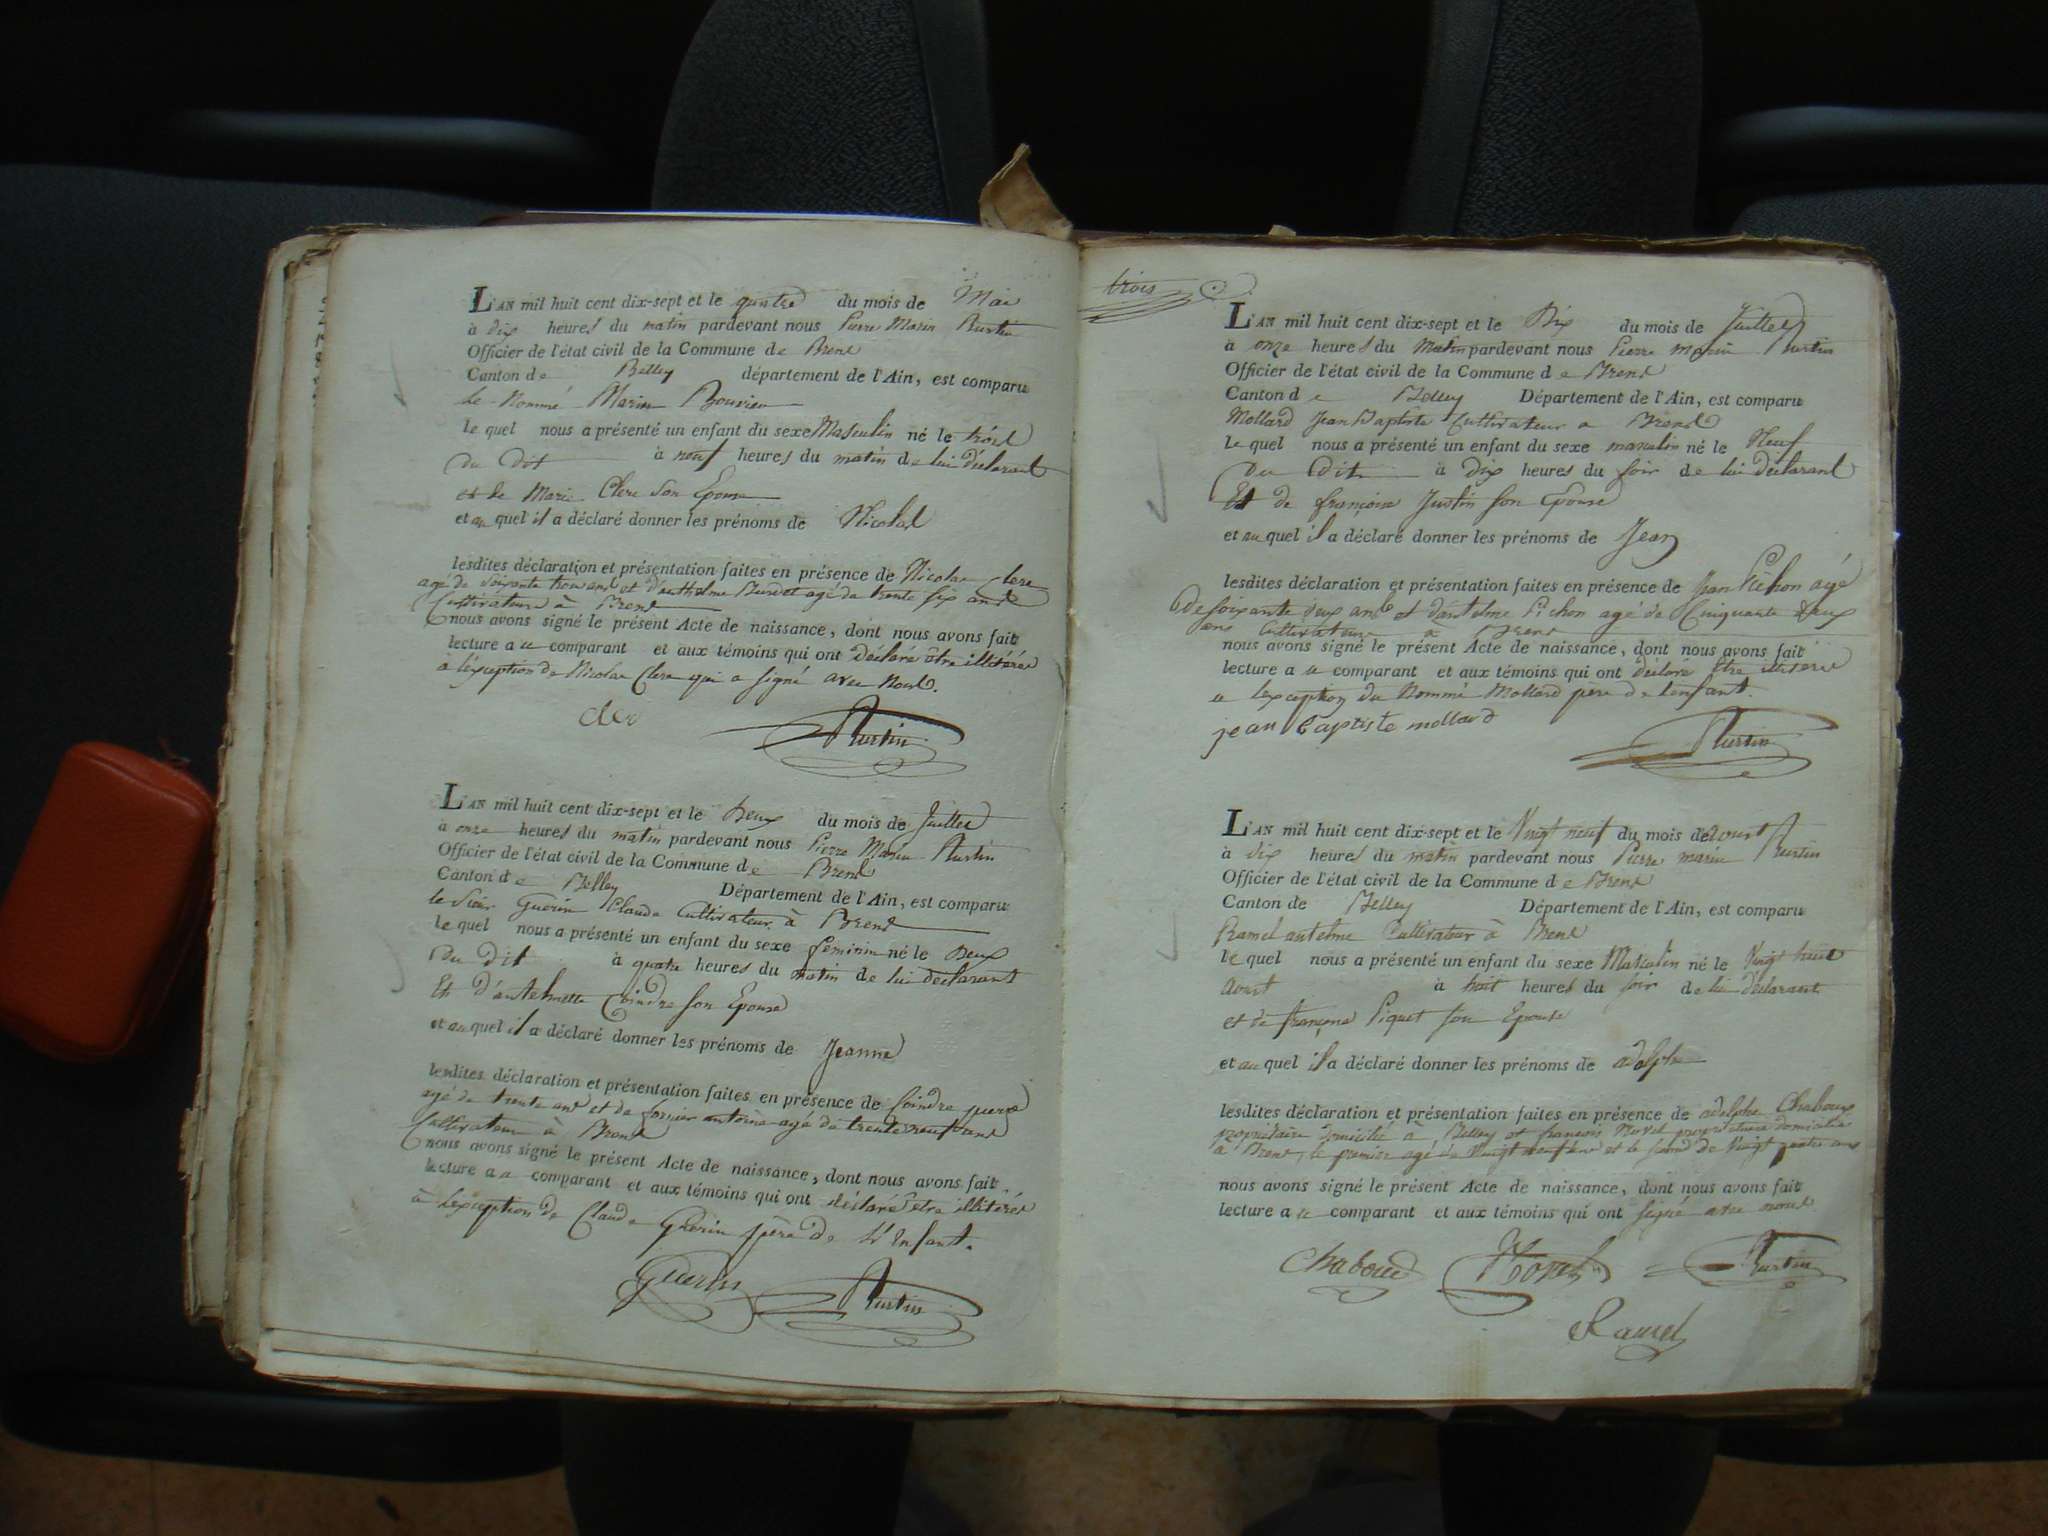 L'AN mil huit cent dix-sept et le quatre du mois de Mai
à dix heures du matin pardevant nous Pierre Marin Rustin
Officier de l'état civil de la Commune de Brens
Canton de Belley département de l'Ain, est comparu
le Nommé Marin Bouvier
le quel nous a présenté un enfant du sexe Masculin né le trois
du dit à neuf heures du matin de lui déclarant
et de Marie Clerc son Epouse
et au quel il a déclaré donner les prénoms de Nicolas
lesdites déclaration et présentation faites en présence de Nicolas Clerc
agé de soixante trois ans et d'anthelme agé de trente six ans
Cultivateurs à Brens
nous avons signé le présent Acte de naissance, dont nous avons fait
lecture a ce comparant et aux témoins qui ont déclaré être illitérés
à l'exception de Nicolas Clerc qui a signé avec nous.
Rustin
L'AN mil huit cent dix-sept et le Deux du mois de Juillet
à onze heures du matin pardevant nous Pierre Marin Rustin
Officier de l'état civil de la Commune de Brens
Canton de Belley Département de l'Ain, est comparu
le Sieur Guerin Claude Cultivateur à Brens
le quel nous a présenté un enfant du sexe féminin né le Deux
Du dit à quatre heures du matin de lui déclarant
Et d'antelmette Coindre son Epouse
et au quel il a déclaré donner les prénoms de Jeanne
lesdites déclaration et présentation faites en présence de Coindre pierre
agé de trente ans et de antoine agé de trente neuf ans
Cultivateurs à Brens
nous avons signé le présent Acte de naissance, dont nous avons fait
lecture a ce comparant et aux témoins qui ont déclaré être illitérés
à l'exception de Claude Guerin père de L'Enfant.
Guerin Rustin
trois
L'AN mil huit cent dix-sept et le Dix du mois de Juillet
à onze heures du Matin pardevant nous Pierre marin Rustin
Officier de l'état civil de la Commune de Brens
Canton de Belley Département de l'Ain, est comparu
Mollard Jean Baptiste Cultivateur a Brens
le quel nous a présenté un enfant du sexe masculin né le Neuf
Du dit à dix heures du soir de lui déclarant
Et de françoise Justin son Epouse
et au quel il a déclaré donner les prénoms de Jean
lesdites déclaration et présentation faites en présence de Jean Pichon agé
De soixante deux ans et d'antelme Pichon agé de Cinquante deux
ans Cultivateurs a Brens
nous avons signé le présent Acte de naissance, dont nous avons fait
lecture a ce comparant et aux témoins qui ont déclaré être illiteré
a l'exception du Nommé Mollard père de l'enfant.
jean baptiste mollard
Rustin
L'AN mil huit cent dix-sept et le Vingt neuf du mois de aoust
à dix heures du matin pardevant nous Pierre marin Rustin
Officier de l'état civil de la Commune de Brens
Canton de Belley Département de l'Ain, est comparu
Ramel antelme Cultivateur à Brens
le quel nous a présenté un enfant du sexe Masculin né le Vingt huit
Aoust à huit heures du soir de lui déclarant
et de françoise Piquet son Epouse
et au quel il a déclaré donner les prénoms de adolphe
lesdites déclaration et présentation faites en présence de adolphe Chaboud
propriétaire domicilié à Belley et françois propriétaire domicilié
à Brens, le premier agé de Vingt neuf ans et le second de Vingt quatre ans
nous avons signé le présent Acte de naissance, dont nous avons fait
lecture a ce comparant et aux témoins qui ont signé avec nous
Chaboud Rustin
Ramel